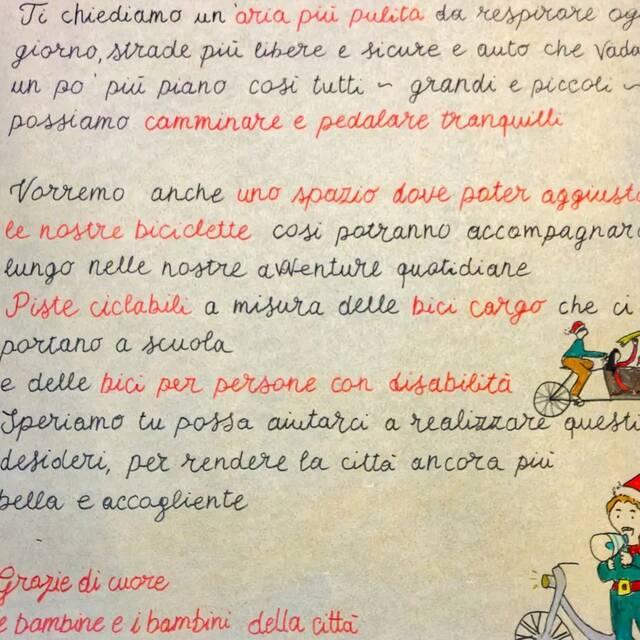 Ti chiediamo un'aria più pulita da respirare og
giorno, strade più libere e sicure e auto che vada
un po' più piano così tutti - grandi e piccoli -
possiamo camminare e pedalare tranquilli
Vorremo anche uno spazio dove poter aggiusta
le nostre biciclette così potranno accompagnar
lungo nelle nostre avventure quotidiane
Piste ciclabili a misura delle bici cargo che ci
portano a scuola
e delle bici per persone con disabilità
Speriamo tu possa aiutarci a realizzare questi
desideri, per rendere la città ancora più
bella e accogliente
Grazie di cuore
e bambine e i bambini della città